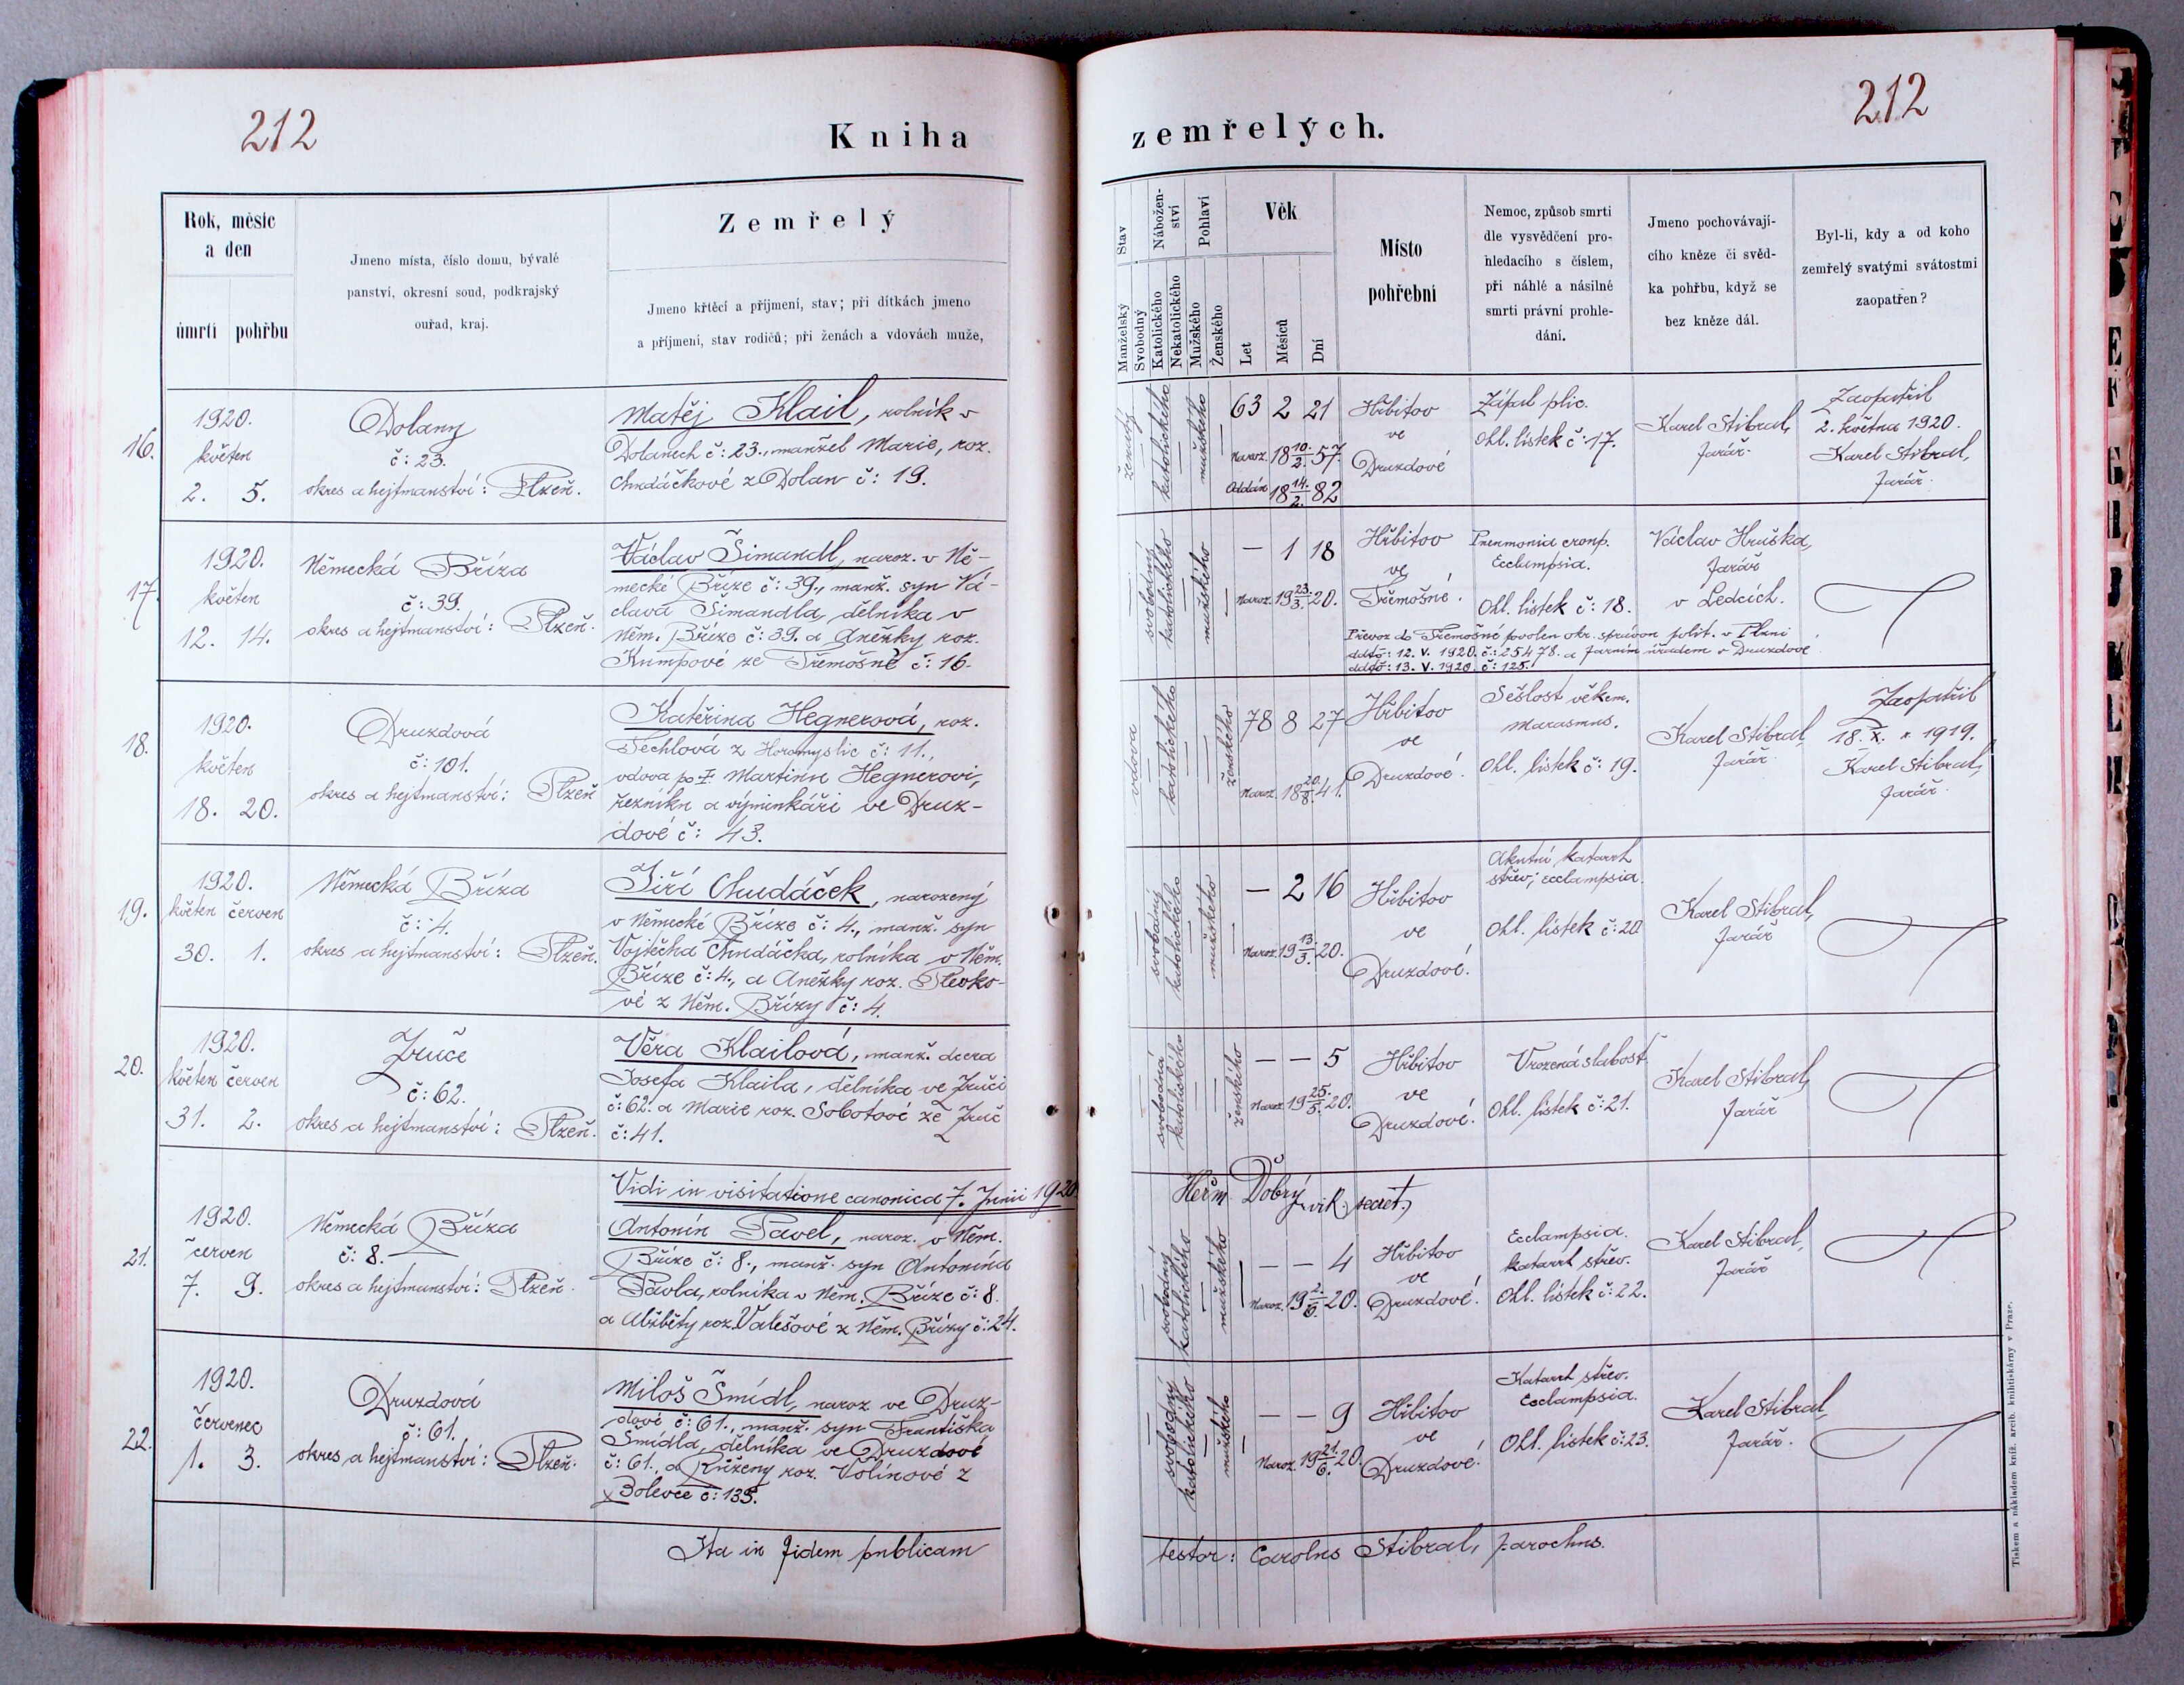 212
Kniha
Rok, měsíc
a den
úmrtí
pohřbu
Jmeno místa, číslo domu, bývalé
panství, okresní soud, podkrajský
ouřad, kraj.
Zemřelý
Jmeno křtěcí a příjmení, stav; při dítkách jmeno
a příjmení, stav rodičů; při ženách a vdovách muže,
16.
1920.
květen
2. 5.
Dolany
č: 23.
okres a hejtmanství: Plzeň.
Matěj Klail, rolník v
Dolanech č: 23., manžel Marie, roz.
Chudáčkové z Dolan č: 19.
17.
1920.
květen
12. 14.
Německá Bříza
č: 39.
okres a hejtmanství: Plzeň.
Václav Šimandl, naroz. v Ně-
mecké Bříze č: 39., manž. syn Vá-
clava Šimandla, dělníka v
Něm. Bříze č: 39. a Anežky roz.
Kumpové ze Třemošné č: 16.
18.
1920.
květen
18. 20.
Druzdová
č: 101.
okres a hejtmanství: Plzeň
Kateřina Hegnerová, roz.
Techlová z Horomyslic č: 11.,
vdova po † Martinu Hegnerovi,
řezníku a výminkáři ve Druz-
dové č: 43.
19.
1920.
květen červen
30. 1.
Německá Bříza
č: 4.
okres a hejtmanství: Plzeň.
Jiří Chudáček, narozený
v Německé Bříze č: 4., manž. syn
Vojtěcha Chudáčka, rolníka v Něm.
Bříze č: 4., a Anežky roz. Pleko-
vé z Něm. Břízy č: 4.
20.
1920.
květen červen
31. 2.
Zruče
č: 62.
okres a hejtmanství: Plzeň.
Věra Klailová, manž. dcera
Josefa Klaila, dělníka ve Zruči
č: 62. a Marie roz. Sobotové ze Zruč
č: 41.
Vidi in visitatione canonica 7. Junii 1920.
21.
1920.
červen
7. 9.
Německá Bříza
č: 8.
okres a hejtmanství: Plzeň.
Antonín Pavel, naroz. v Něm.
Bříze č: 8., manž. syn Antonína
Pavla, rolníka v Něm. Bříze č: 8.
a Alžběty roz. Valešové z Něm. Břízy č: 24.
22.
1920.
červenec
1. 3.
Druzdová
č: 61.
okres a hejtmanství: Plzeň.
Miloš Šmídl, naroz ve Druz-
dové č: 61., manž. syn Františka
Šmídla, dělníka ve Druzdové
č: 61., a Růženy roz. Volínové z
Bolevce č: 135.
Ita in fidem publicam
212
zemřelých.
Stav
Manželský
Svobodný
Nábožen-
ství
Katolického
Nekatolického
Pohlaví
Mužského
Ženského
Věk
Let
Měsíců
Dní
Místo
pohřební
Nemoc, způsob smrti
dle vysvědčení pro-
hledacího s číslem,
při náhlé a násilné
smrti právní prohle-
dání.
Jmeno pochovávají-
cího kněze či svěd-
ka pohřbu, když se
bez kněze dál.
Byl-li, kdy a od koho
zemřelý svatými svátostmi
zaopatřen?
ženatý
katolického
mužského
63 2 21
Naroz. 18 10./2. 57.
Oddán 18 14./2. 82
Hřbitov
ve
Druzdové
Zápal plic.
Ohl. lístek č: 17.
Karel Stibral,
farář.
Zaopatřil
2. května 1920.
Karel Stibral,
farář.
svobodný
katolického
mužského
— 1 18
Naroz. 19 23./3. 20.
Hřbitov
ve
Třemošné.
Pneumonia croup.
Ecclampsia.
Ohl. lístek č: 18.
Václav Hruška,
farář
v Ledcích.
Převoz do Třemošné povolen okr. správou polit. v Plzni
ddtō: 12. V. 1920. č: 25478. a farním úřadem v Druzdové
ddtō: 13. V. 1920. č: 125.
vdova
katolického
ženského
78 8 27
Naroz. 18 20./8. 41.
Hřbitov
ve
Druzdové.
Sešlost věkem.
Marasmus.
Ohl. lístek č: 19.
Karel Stibral,
farář.
Zaopatřil
18. X. r. 1919.
Karel Stibral,
farář.
svobodný
katolického
mužského
— 2 16
Naroz. 19 13./3. 20.
Hřbitov
ve
Druzdové.
Akutní katarrh
střev; ecclampsia.
Ohl. lístek č: 20
Karel Stibral,
farář
svobodná
katolického
ženského
— — 5
Naroz. 19 25./5. 20.
Hřbitov
ve
Druzdové.
Vrozená slabost.
Ohl. lístek č: 21.
Karel Stibral,
farář
Heřm. Dobrý, vik. secret.
svobodný
katolického
mužského
— — 4
Naroz. 19 2./6. 20.
Hřbitov
ve
Druzdové.
Ecclampsia.
Katarrh střev.
Ohl. lístek č: 22.
Karel Stibral,
farář
svobodný
katolického
mužského
— — 9
Naroz. 19 21./6. 20.
Hřbitov
ve
Druzdové.
Katarrh střev.
Ecclampsia.
Ohl. lístek č: 23.
Karel Stibral,
farář.
testor: Carolus Stibral, parochus.
Tiskem a nákladem kníž. arcib. knihtiskárny v Praze.